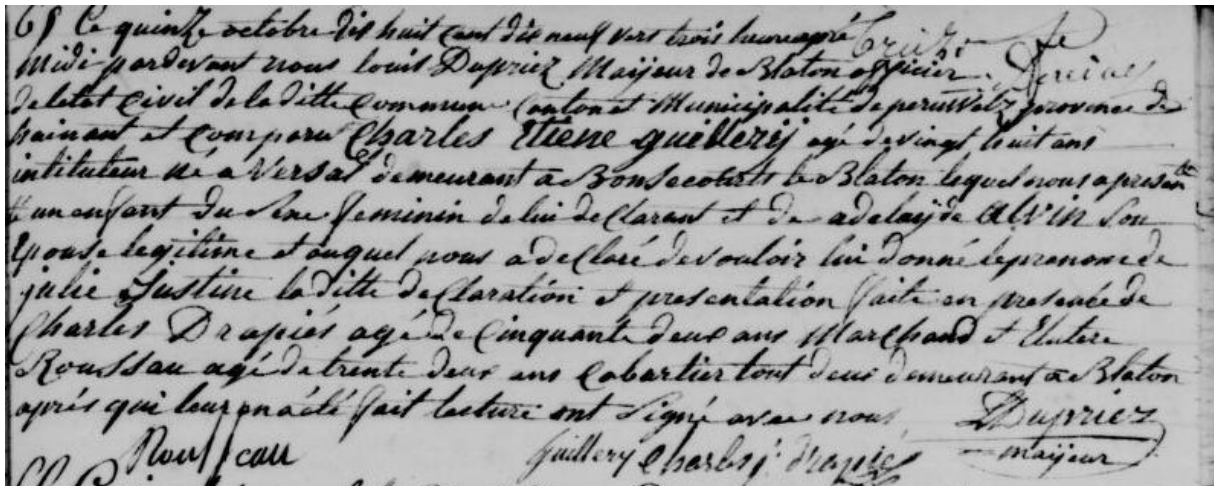 65 Ce quinze octobre dix huit cent dix neuf vers trois heure apré
midi pardevant nous louis Dupriez Maijeur de Blaton officier
de letat Civil de la ditte Commune Canton et Municipalité de peruwelz province de
hainaut et Comparu Charles Etiene guillerij agé de vingt huit ans
intituteur né a Versal demeurant a Bonsecourts le Blaton lequel nous a presenté
un enfant du Sexe feminin de lui declarant et de adelayde alvin Son
Epouse legitime et auquel nous a declaré de vouloir lui donné le prenome de
julie Justine la ditte declaration et presentation faite en presence de
Charles Drapiés agé de Cinquante deux ans Marchand et Elutere
Roussau agé de trente deux ans Cabartier tout deux demeurant a Blaton
aprés qui leur en a été fait lecture ont Signé avec nous
LDupriez
Rousseau guillery Charles j drapiés maijeur